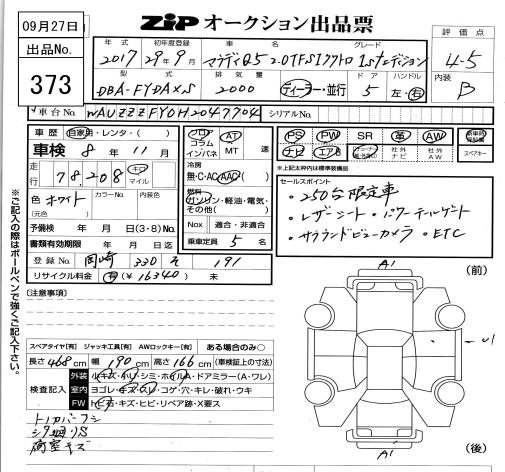 09月27日
出品No.
373
ZiP オークション出品票
評価点
4-5
内装
B
年式
2017
初年度登録
29年9月
車名
アウディQ5 2.0TFSIクワトロ
グレード
1stエディション
型式
DBA-FYDAXS
排気量
2000
ディーラー・並行
ドア
5
ハンドル
左・右
車台No.
WAUZZZFY0H2047704
シリアルNo.
車歴 自家用・レンタ・( )
車検 8年11月
走行
78,208
キロ
マイル
色 ホワイト
(元色)
カラーNo.
内装色
予備検 年 月 日(3・6)ヵ月
書類有効期限 年 月 日迄
登録No. 岡崎 330 そ 191
リサイクル料金 有(¥16340) 未
フロア
コラム
インパネ
AT
MT 速
冷房
無・C・AC(AAC)
燃料
ガソリン・軽油・電気・
その他( )
Nox 適合・非適合
乗車定員 5 名
PS PW SR 革 AW
ナビ エアB
社外
ナビ
社外
AW
スペアキー
※上記太わくは標準装備品
セールスポイント
・250台限定車
・レザーシート・パワーテールゲート
・サラウンドビューカメラ・ETC
※ご記入の際はボールペンで強くご記入下さい。
[注意事項]
スペアタイヤ[有] ジャッキ工具[有] AWロックキー[有] ある場合のみ○
長さ468cm 幅190cm 高さ166cm (車検証上の寸法)
検査記入
外装 ルキズ・ヘコミ・シミ・ホイル・ドアミラー(A・ワレ)
室内 ヨゴレ・キズ・スレ・コゲ・穴・キレ・破れ・ウキ
FW トビ石・キズ・ヒビ・リペア跡・X要ス
荷室キズ
A1
(前)
U1
A1
(後)